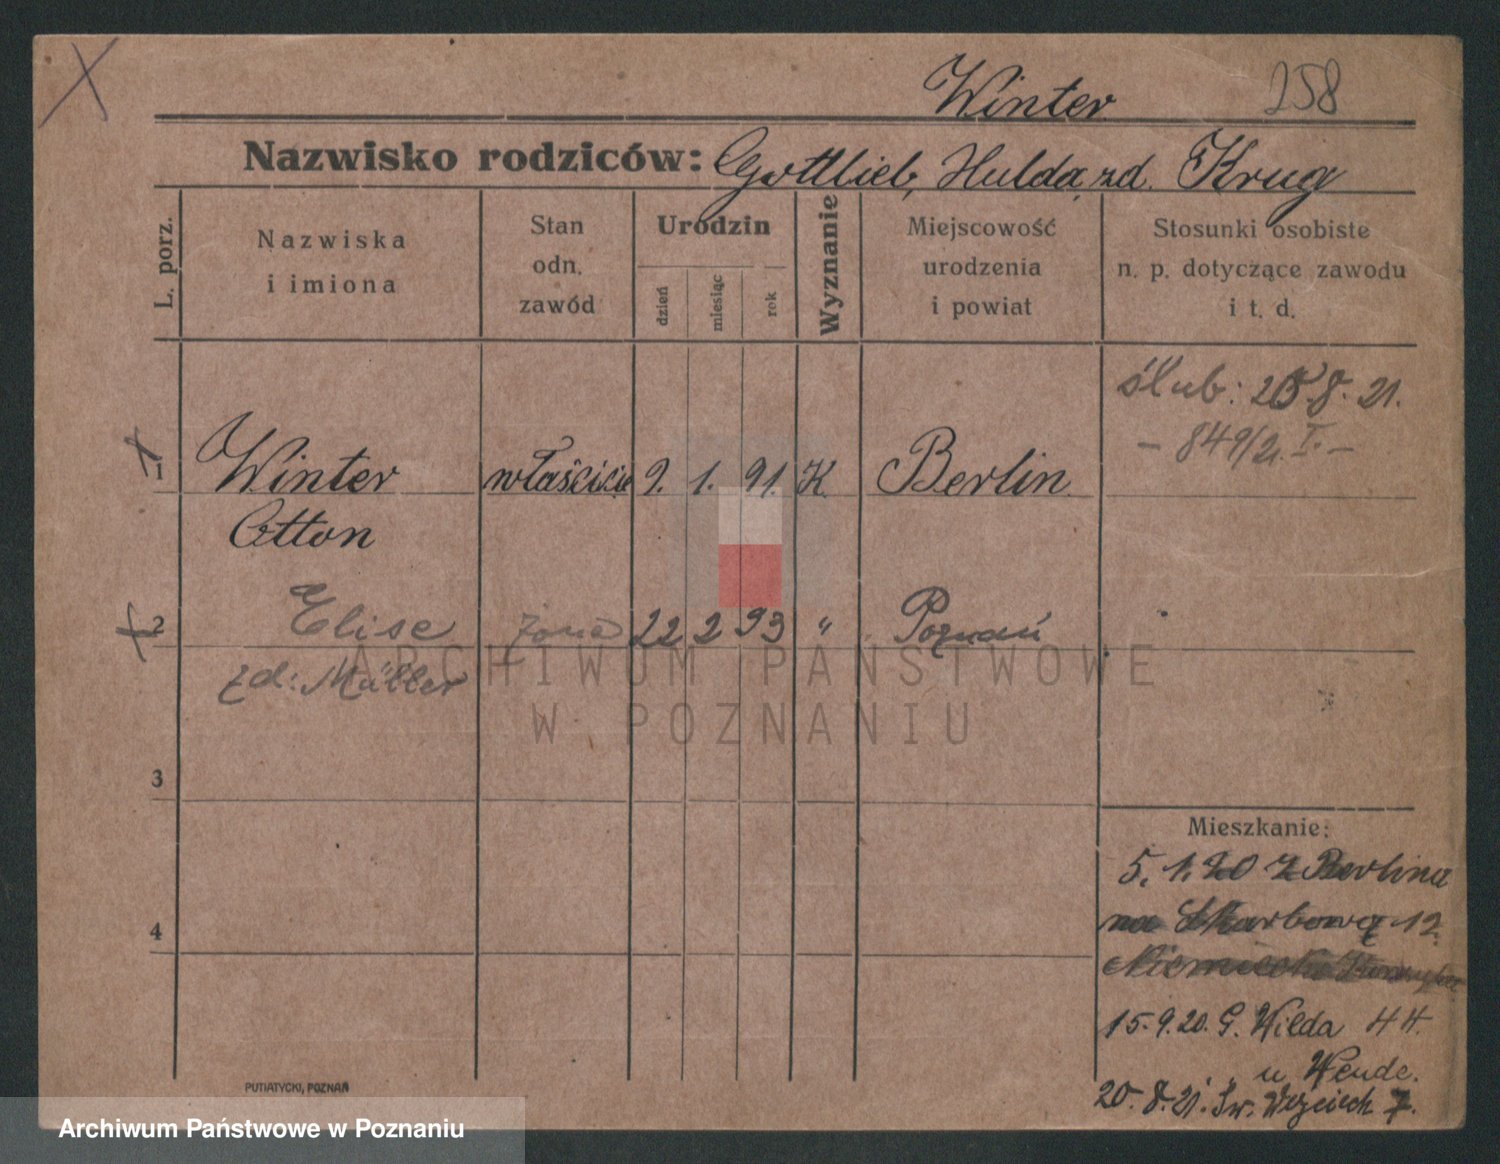 Winter 258
Nazwisko rodziców: Gottlieb, Hulda, zd. Krug
L. porz.
Nazwiska
i imiona
Stan
odn.
zawód
Urodzin
dzień
miesiąc
rok
Wyznanie
Miejscowość
urodzenia
i powiat
Stosunki osobiste
n. p. dotyczące zawodu
i t. d.
ślub: 25.8.21.
- 849/21. I. -
1 Winter właścicie 9. 1. 91. K. Berlin
Otton
2 Elise żona 22 2 93 " Poznań
zd: Müller
3
4
Mieszkanie:
5. 1. 20 z Berlina
na Skarbową 12.
Niemiecki
15.9.20. G. Wilda 44.
u Wende.
20.8.21. Św. Wojciech 7.
PUTIATYCKI, POZNAŃ
ARCHIWUM PAŃSTWOWE
W POZNANIU
Archiwum Państwowe w Poznaniu